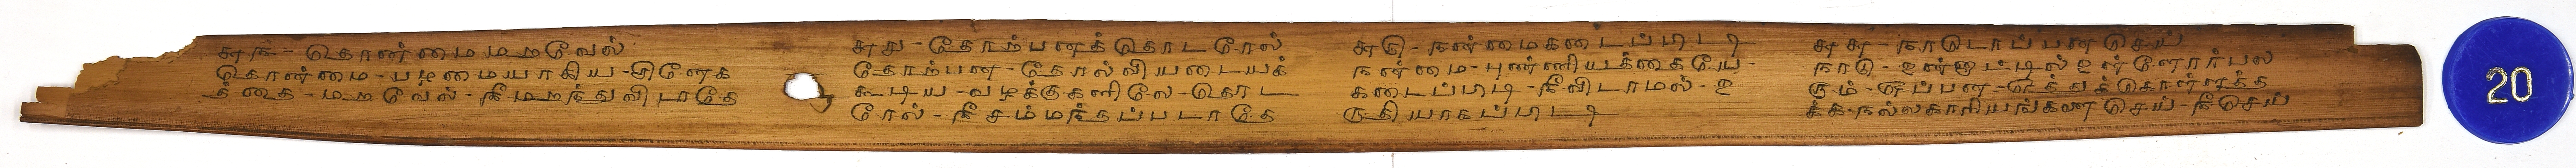 ௬௩ - தொன்மைமறவேல்
தொன்மை - பழமையாகிய - சினேக
த்தை - மறவேல் - நீ மறந்துவிடாதே
௬௪ - தோற்பனக் தொடரேல்
தோற்பன - தோல்வியடையக்
கூடிய - வழக்குகளிலே - தொட
ரேல் - நீ சம்மந்தப்படாதே
௬௫ - நன்மைகடைப்பிடி
நன்மை - புண்ணியத்தையே
கடைப்பிடி - நீ விடாமல் - உ
றுதியாகப்பிடி
௬௬ - நாடொப்பனசெய்
நாடு - உன்னாட்டில் உள்ளோர்பல
ரும் - ஒப்பன - ஒத்துக்கொள்ளத்த
க்க நல்லகாரியங்களை செய் - நீ செய்
20